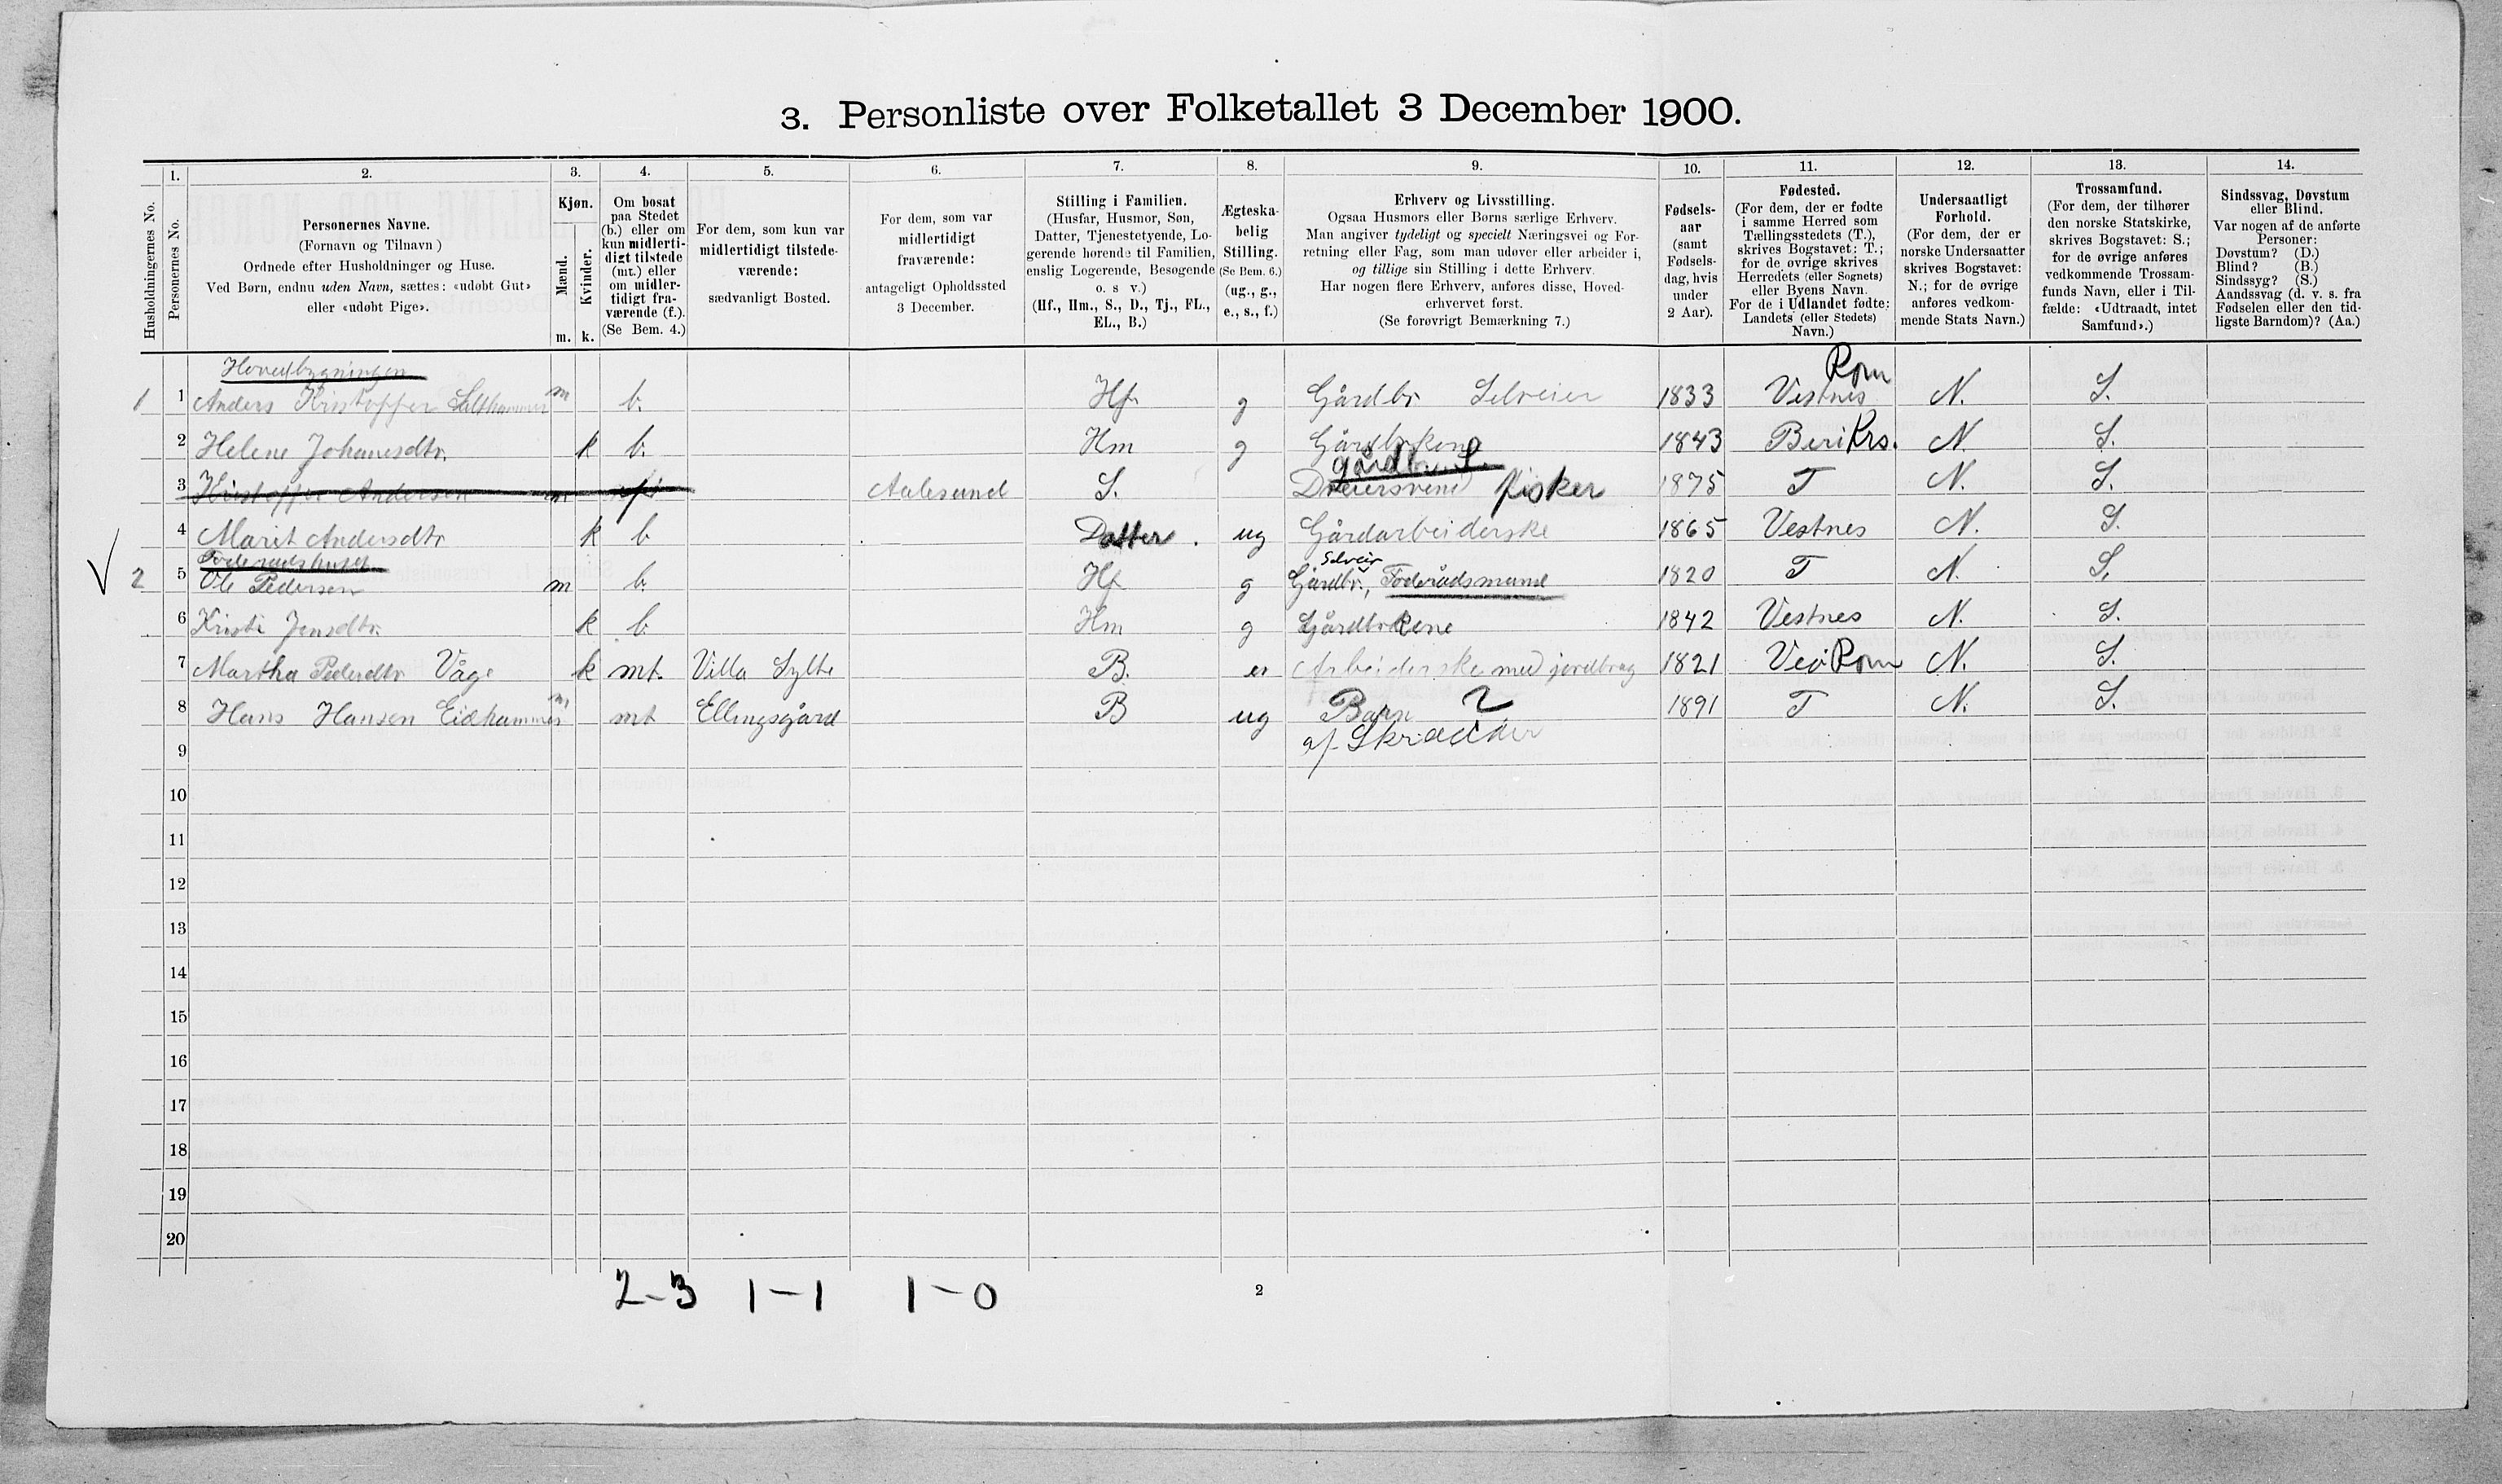 3. Personliste over Folketallet 3 December 1900.
1. 2. 3. 4. 5. 6. 7. 8. 9. 10. 11. 12. 13. 14.
Husholdningernes No.
Personernes No.
Personernes Navne.
(Fornavn og Tilnavn)
Ordnede efter Husholdninger og Huse.
Ved Børn, endnu uden Navn, sættes: «udøbt Gut»
eller «udøbt Pige».
Kjøn.
Mænd.
Kvinder.
m. k.
Om bosat
paa Stedet
(b.) eller om
kun midlerti-
digt tilstede
(mt.) eller
om midler-
tidigt fra-
værende (f.).
(Se Bem. 4.)
For dem, som kun var
midlertidigt tilstede-
værende:
sædvanligt Bosted.
For dem, som var
midlertidigt
fraværende:
antageligt Opholdssted
3 December.
Stilling i Familien.
(Husfar, Husmor, Søn,
Datter, Tjenestetyende, Lo-
gerende hørende til Familien,
enslig Logerende, Besøgende
o. s v.)
(Hf., Hm., S., D., Tj., FL.,
EL., B.)
Ægteska-
belig
Stilling.
(Se Bem. 6.)
(ug., g.,
e., s., f.)
Erhverv og Livsstilling.
Ogsaa Husmors eller Børns særlige Erhverv.
Man angiver tydeligt og specielt Næringsvei og For-
retning eller Fag, som man udøver eller arbeider i,
og tillige sin Stilling i dette Erhverv.
Har nogen flere Erhverv, anføres disse, Hoved-
erhvervet først.
(Se forøvrigt Bemærkning 7.)
Fødsels-
aar
(samt
Fødsels-
dag, hvis
under
2 Aar).
Fødested.
(For dem, der er fødte
i samme Herred som
Tællingsstedets (T.),
skrives Bogstavet: T.;
for de øvrige skrives
Herredets (eller Sognets)
eller Byens Navn.
For de i Udlandet fødte:
Landets (eller Stedets)
Navn.)
Undersaatligt
Forhold.
(For dem, der er
norske Undersaatter
skrives Bogstavet:
N.; for de øvrige
anføres vedkom-
mende Stats Navn.)
Trossamfund.
(For dem, der tilhører
den norske Statskirke,
skrives Bogstavet: S.;
for de øvrige anføres
vedkommende Trossam-
funds Navn, eller i Til-
fælde: «Udtraadt, intet
Samfund».)
Sindssvag, Døvstum
eller Blind.
Var nogen af de anførte
Personer:
Døvstum? (D.)
Blind? (B.)
Sindssyg? (S.)
Aandssvag (d. v. s. fra
Fødselen eller den tid-
ligste Barndom)? (Aa.)
Hovedbygningen Rom
1 1 Anders Kristoffer Salthammer m b. Hf. g Gårdbr Selveier 1833 Vestnes N. S.
2 Helene Johanesdtr. k b. Hm g Gårdbrkone 1843 Beri Krs. N. S.
gårdbr. S.
3 Kristoffer Andersen m Aalesund S. Dreiersvend fisker 1875 T N. S.
4 Marit Andersdtr k b Datter. ug Gårdarbeiderske 1865 Vestnes N. S.
Foderaadshuset Selveir
2 5 Ole Pedersen m b. Hf g Gårdbr., Foderådsmand 1820 T N. S.
6 Kristi Jensdtr. k b. Hm g Gårdbrkone 1842 Vestnes N. S.
7 Martha Pedersdtr Våge k mt. Villa Sylte B. e Arbeiderske med jordbrug 1821 Veø Rom N. S.
8 Hans Hansen Eidhammer m mt Ellingsgård B ug Barn 2 1891 T N. S.
9 af Skrædder
10
11
12
13
14
15
16
17
18
19
20
2-3 1-1 1-0
2